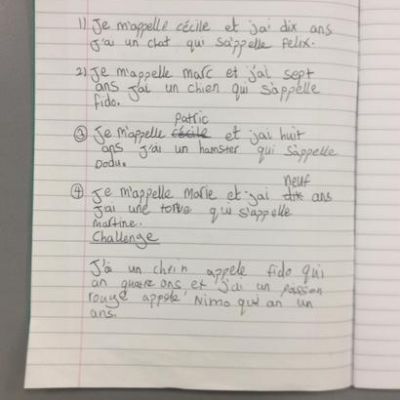 1) Je m'appelle cécile et j'ai dix ans
J'ai un chat qui s'appelle Felix.
2) Je m'appelle marc et j'ai sept
ans J'ai un chien qui s'appelle
fido.
Patric
③ Je m'appelle cécile et j'ai huit
ans J'ai un hamster qui s'appelle
Dodu.
neuf
④ Je m'appelle marie et j'ai dix ans
J'ai une qui s'appelle
martine.
Challenge
J'ai un chein appele fido qui
an quatre ans et j'ai un poission
rouge appele Nimo qui an un
ans.